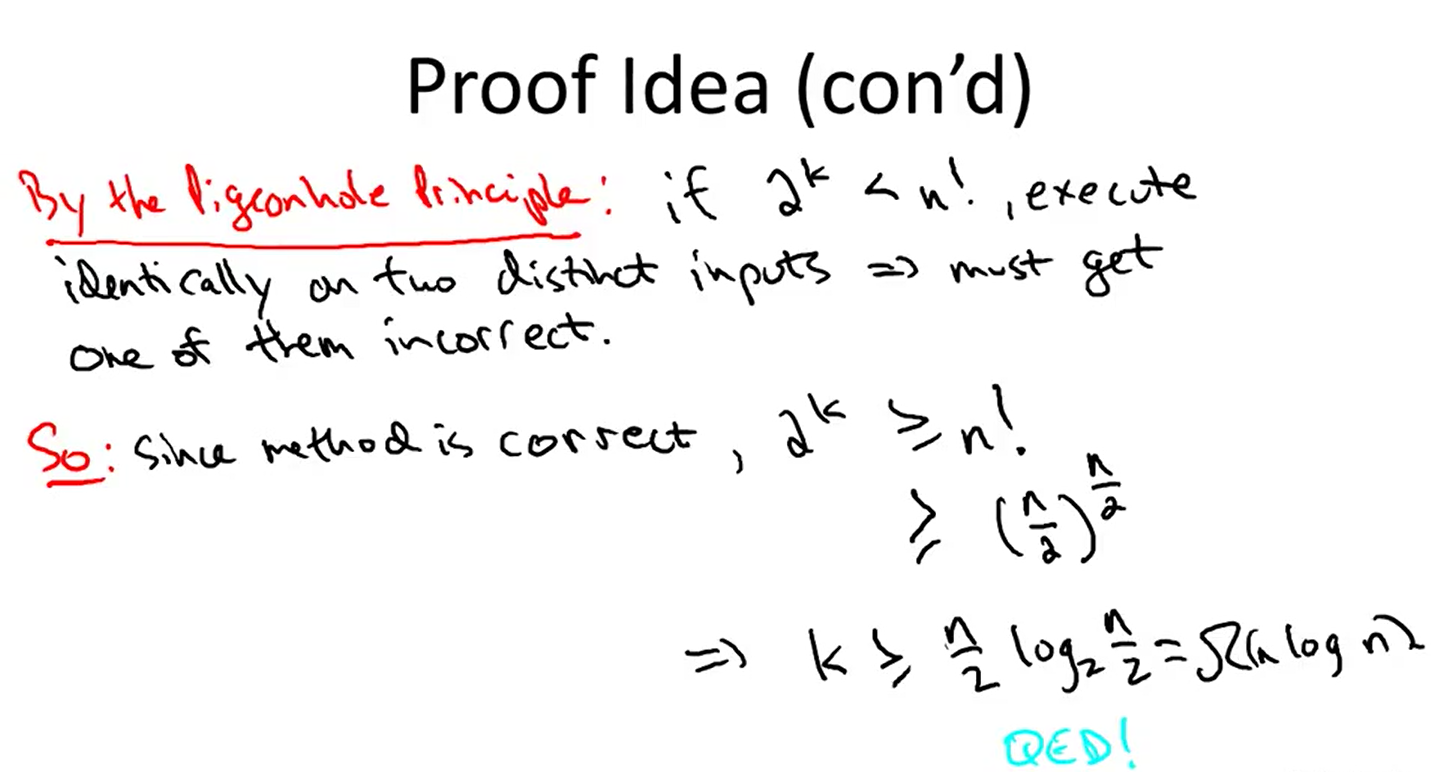 Proof Idea (con’d)
By the Pigeonhole Principle: if 2^k < n!, execute
identically on two distinct inputs => must get
one of them incorrect.
So: since method is correct, 2^k ≥ n!
≥ (n/2)^(n/2)
=> k ≥ n/2 log₂ n/2 = Ω(n log n)
QED!